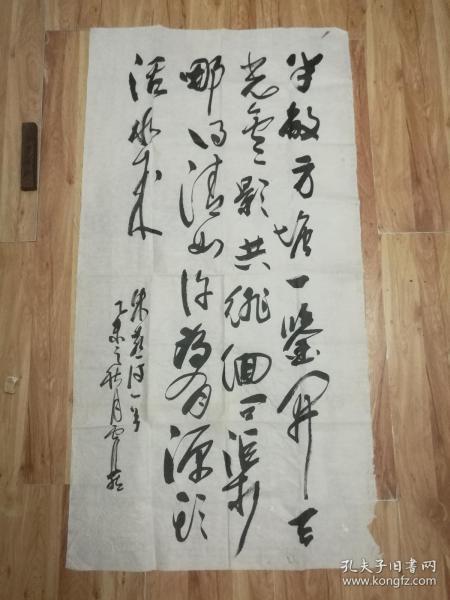 半亩方塘一鉴开天
光云影共徘徊问渠
那得清如许为有源头
活水来
朱熹诗一首
乙未之秋月
孔夫子旧书网
www.kongfz.com